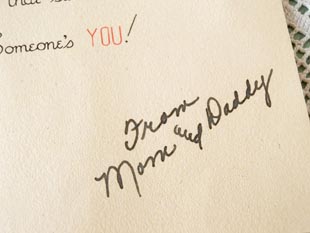 that
Someone's YOU!
From
Mom and Daddy